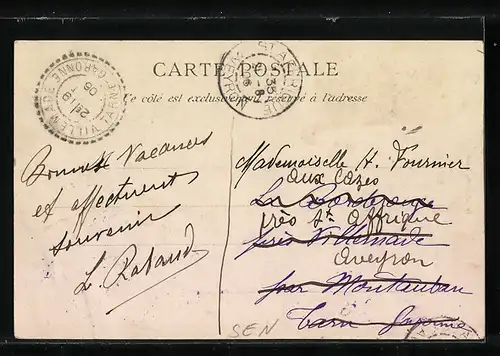 CARTE POSTALE
Ce côté est exclusivement réservé à l'adresse
VILLEMADE
TARN-ET-GARONNE
Bonnes Vacances
et affectueux
souvenir
L. Rabaud
Mademoiselle H. Fournier
aux Cazes
La
près St Affrique
près Villemade
Aveyron
par Montauban
Tarn Garonne
SEN